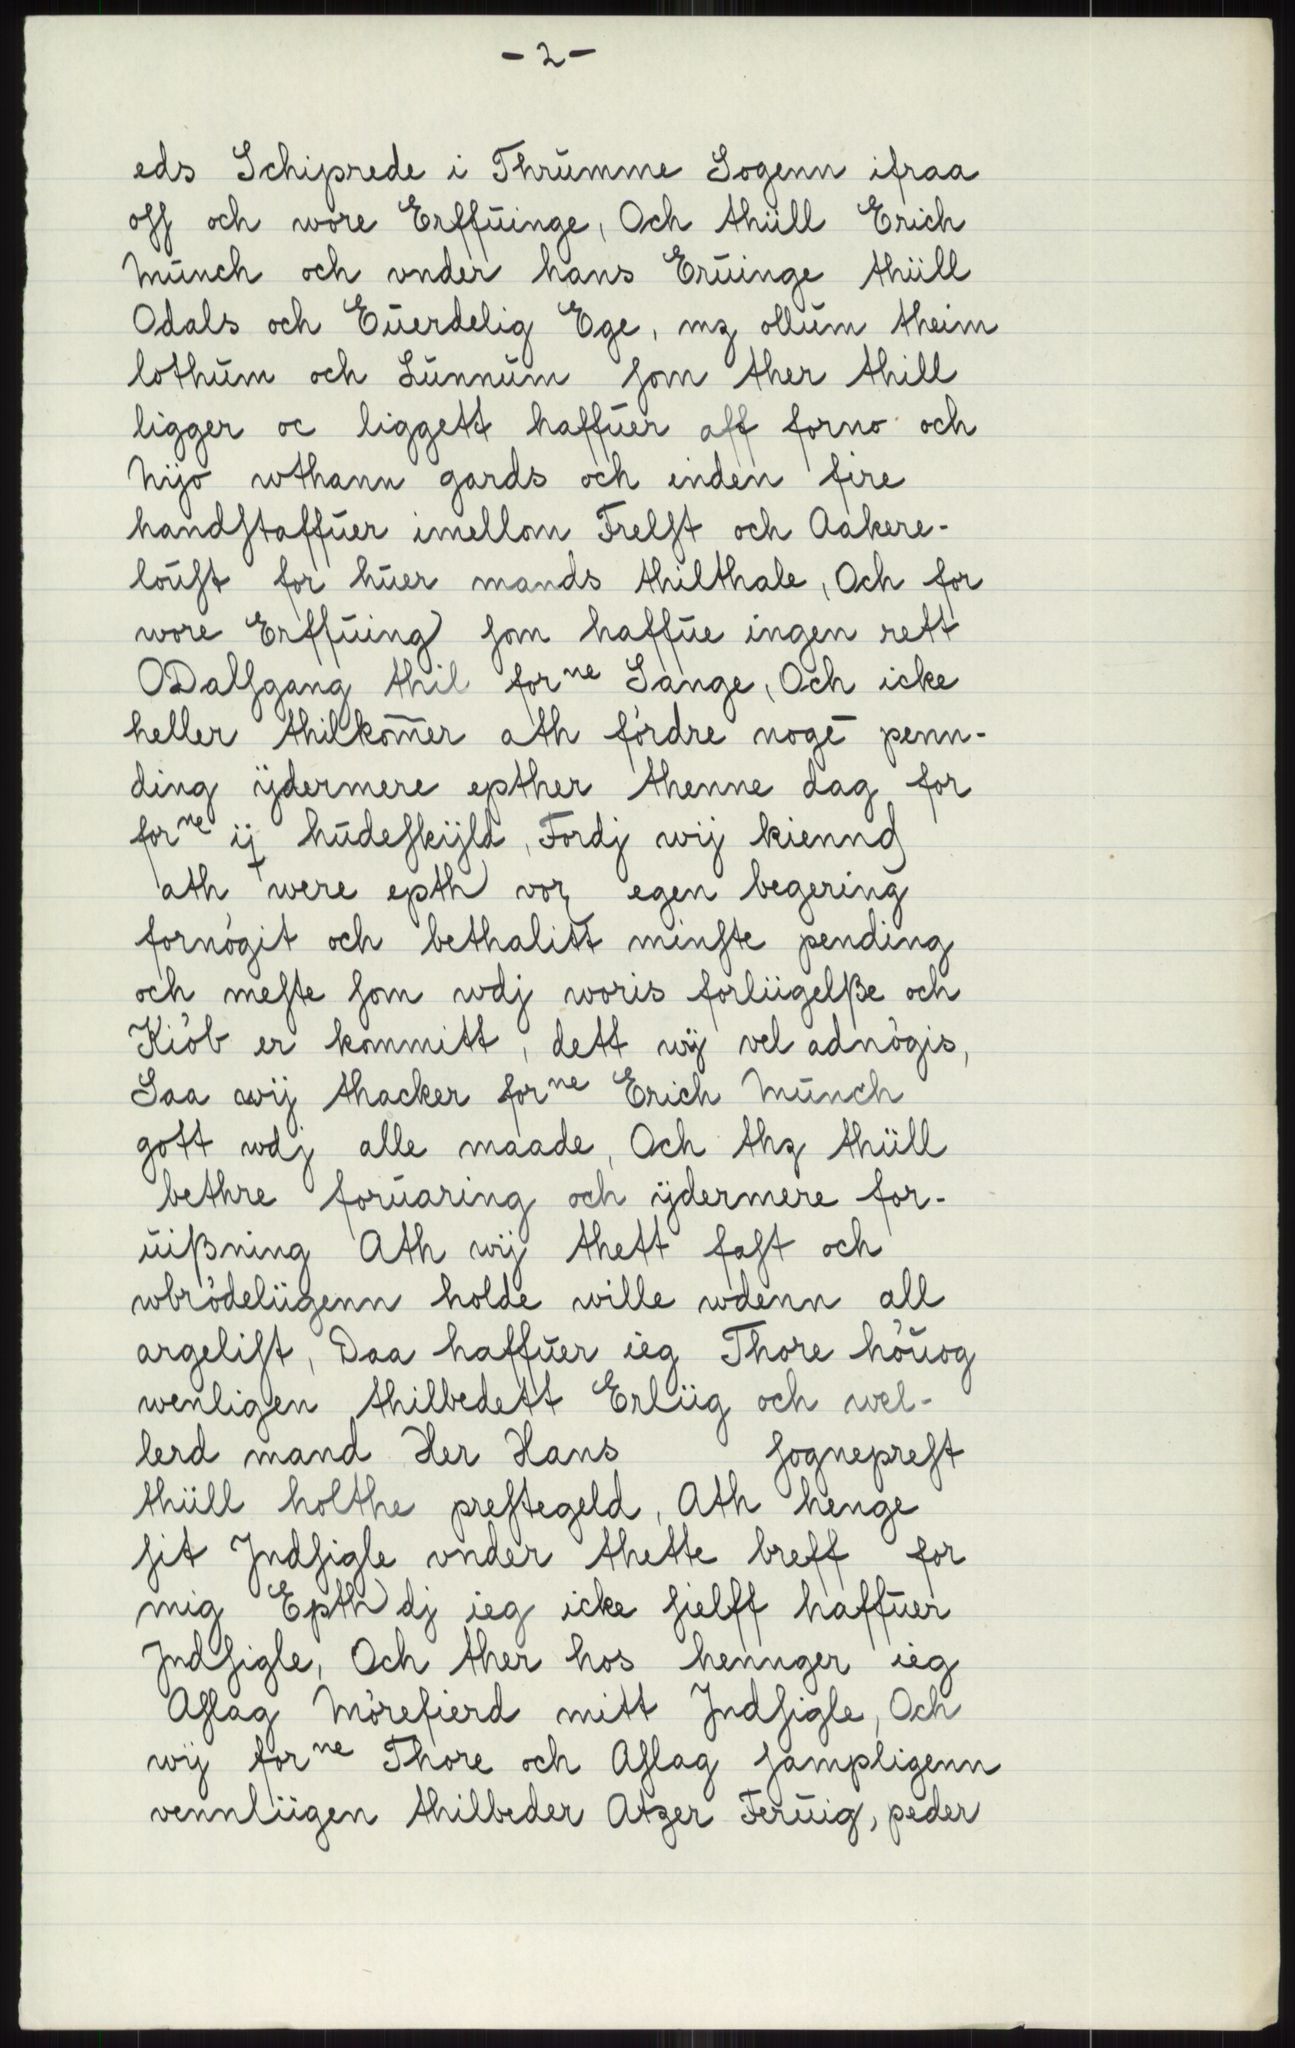 - 2 -
eds Schiprede i Thrŭmme Sogenn ifraa
off och wore Erffŭinge, Och thüll Erich
Mŭnch och vnder hans Erŭinge thüll
Odals och Eŭerdelig Ege, mz ollŭm theim
lothŭm och Lŭnnŭm som ther thill
ligger oc liggett haffŭer aff forno och
Nijo wthann gards och inden fire
handstaffŭer imellom Frelst och Aakere-
loŭst for hŭer mands thilthale, Och for
wore Erffŭing som haffŭe ingen rett
ODalsgang thil forne Sange, Och icke
heller thilkom̅er ath fórdre noge̅ penn-
ding ÿdermere epther thenne dag for
forne ij hŭdeskijld, Fordj wij kiennd
ath were epth vor egen begering
fornógit och bethalitt minste pending
och meste som wdj woris forlügelße och
Kiób er kommitt, dett wij vel adnógis,
Saa wij thacker forne Erich Mŭnch
gott wdj alle maade, Och thz thüll
bethre forŭaring och ÿdermere for-
ŭißning Ath wij thett fast och
wbródelügenn holde wille wdenn all
argelist, Daa haffŭer ieg Thore hóŭog
wenligen thilbedett Erlüg och wel-
lerd mand Her Hans sogneprest
thüll holthe prestegeld, Ath henge
sit Jndsigle vnder thette breff for
mig Epth dj ieg icke sielff haffŭer
Jndsigle, Och ther hos hennger ieg
Aslag Mórefierd mitt Jndsigle, Och
wij forne Thore och Aslag sampligenn
vennlügen thilbeder Atzer Ferŭig, peder